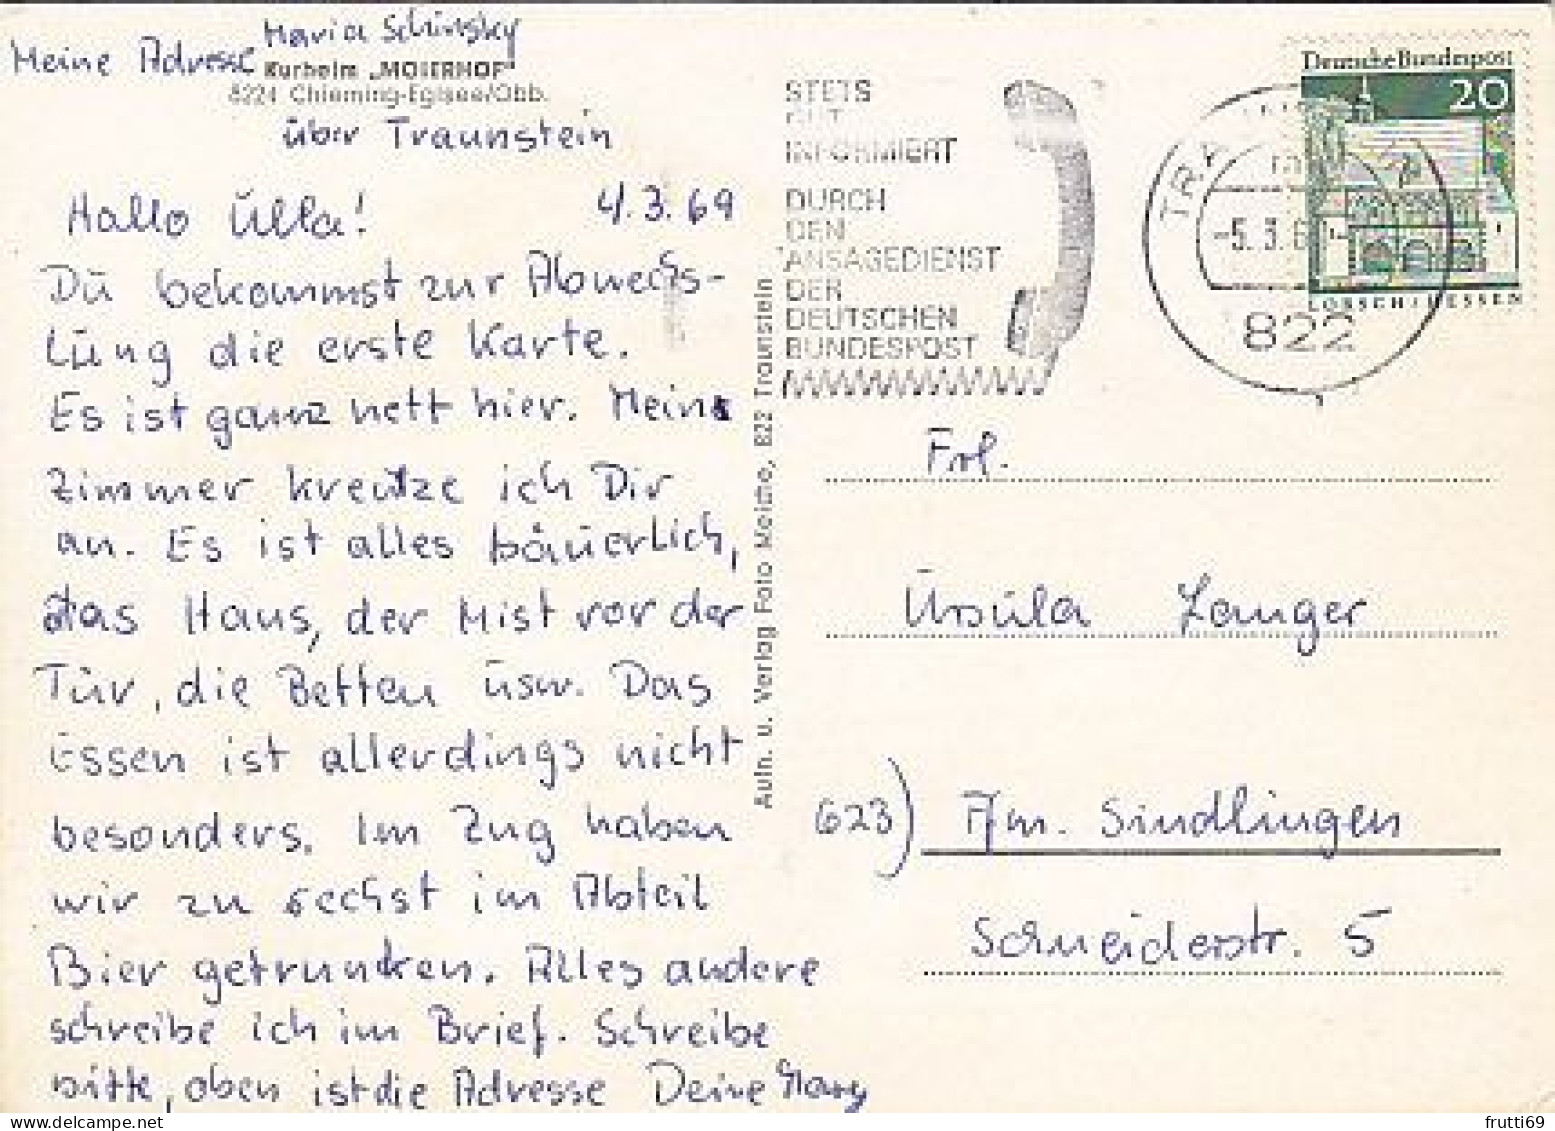 Meine Adresse
Maria Schinsky
Kurheim „MOIERHOF"
8224 Chieming-Egisee/Obb.
über Traunstein
Hallo Ulla! 4.3.69
Du bekommst zur Abwechs-
lung die erste Karte.
Es ist ganz nett hier. Mein
Zimmer kreuze ich Dir
an. Es ist alles bäuerlich,
das Haus, der Mist vor der
Tür, die Betten usw. Das
Essen ist allerdings nicht
besonders. Im Zug haben
wir zu sechst im Abteil
Bier getrunken. Alles andere
schreibe ich im Brief. Schreibe
bitte, oben ist die Adresse Deine
Aufn. u. Verlag Foto 822 Traunstein
STETS
GUT
INFORMIERT
DURCH
DEN
ANSAGEDIENST
DER
DEUTSCHEN
BUNDESPOST
-5.3.6
822
Deutsche Bundespost
20
LORSCH/HESSEN
Frl.
Ursula Langer
623) Ffm. Sindlingen
Schneiderstr. 5
frutti69